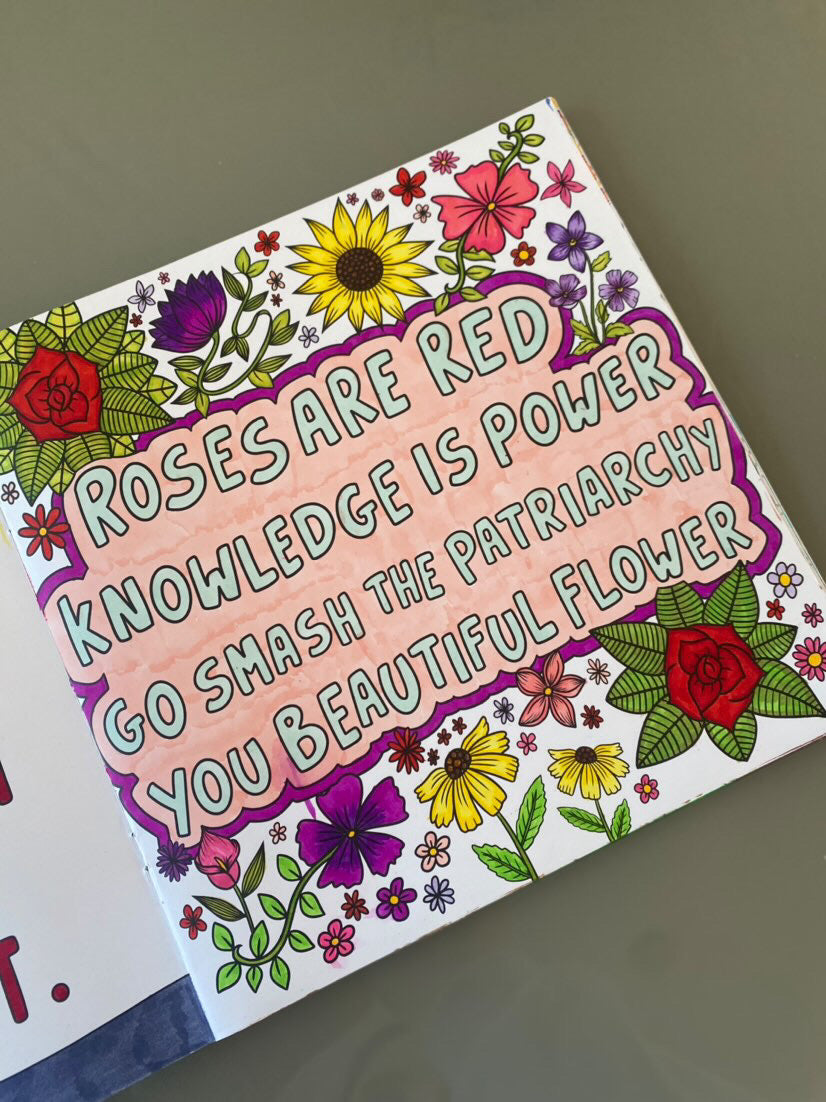 ROSES ARE RED
KNOWLEDGE IS POWER
GO SMASH THE PATRIARCHY
YOU BEAUTIFUL FLOWER
T.